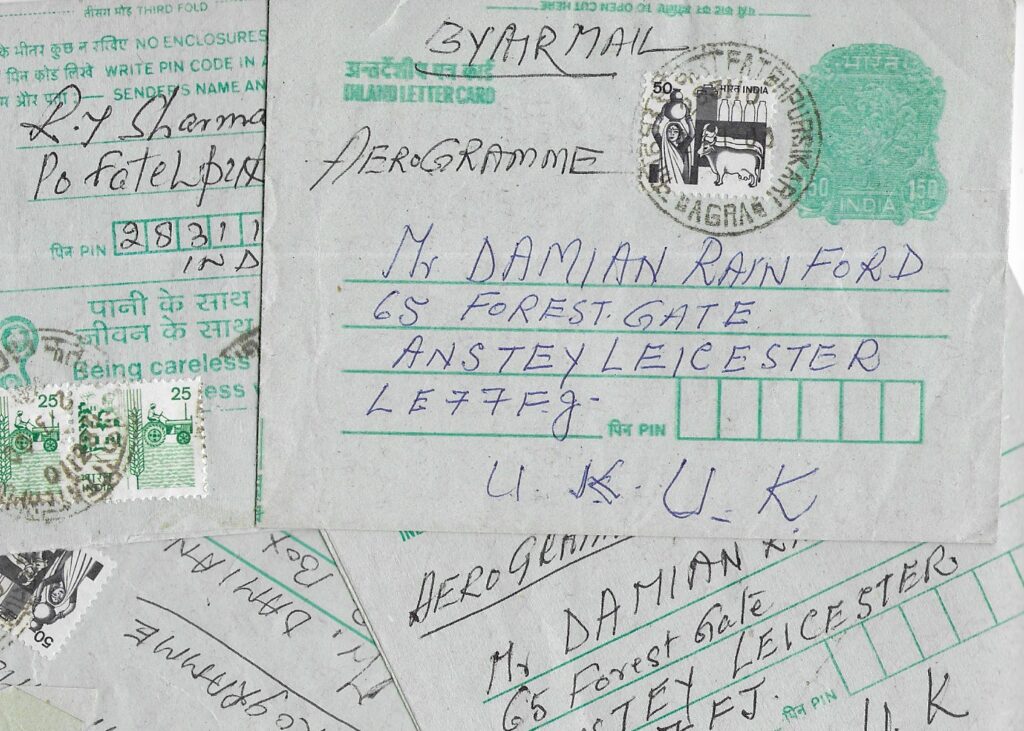 तीसरा मोड़ THIRD FOLD
के भीतर कुछ न रखिए NO ENCLOSURES
पिन कोड लिखें WRITE PIN CODE IN
और पता SENDER'S NAME AN
R.Y Sharma
Po Fatehpur
पिन PIN 28311
IND
पानी के साथ
जीवन के साथ
Being careless
ess
25
25
TO OPEN CUT HERE
BY AIR MAIL
अन्तर्देशीय पत्र कार्ड
INLAND LETTER CARD
AEROGRAMME
50 भारत INDIA
FATEHPURSIKARI
AGRA
भारत
150
INDIA
Mr DAMIAN RAINFORD
65 FOREST. GATE
ANSTEY LEICESTER
LE77F.J-
पिन PIN
U.K. U.K
AEROGRAMM
Mr DAMIAN
65 Forest Gate
NSTEY LEICESTER
7 FJ.
पिन PIN
U.K
50
Box
DAMIAN
ROGRAMME